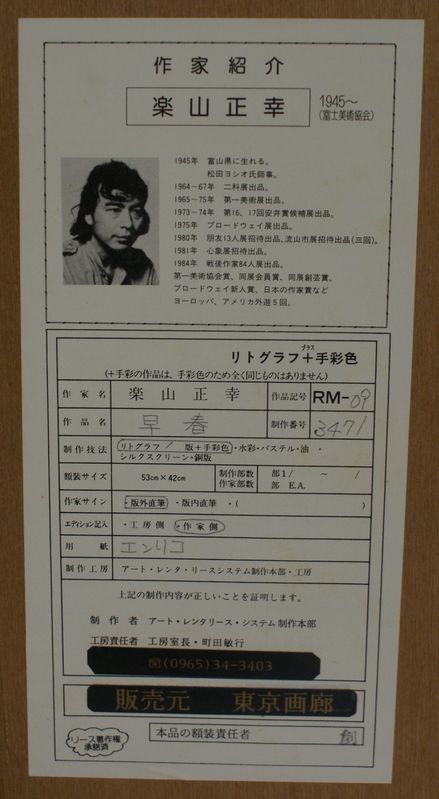 作家紹介
楽山正幸
1945〜
(富士美術協会)
1945年 富山県に生れる。
松田ヨシオ氏師事。
1964〜67年 二科展出品。
1965〜75年 第一美術展出品。
1973〜74年 第16、17回安井賞候補展出品。
1975年 ブロードウェイ展出品。
1980年 朋友13人展招待出品、流山市展招待出品(三回)。
1981年 心象展招待出品。
1984年 戦後作家84人展出品。
第一美術協会賞、同展会員賞、同展創芸賞、
ブロードウェイ新人賞、日本の作家賞など
ヨーロッパ、アメリカ外遊5回。
プラス
リトグラフ+手彩色
(+手彩の作品は、手彩色のため全く同じものはありません)
作家名 楽山正幸 作品記号 RM-09
作品名 早春 制作番号 3471
制作技法 リトグラフ/ 版+手彩色・水彩・パステル・油・
シルクスクリーン・銅版
額装サイズ 53cm×42cm 制作部数 部1/ 〜 /
作家部数 部 E.A.
作家サイン ・版外直筆 ・版内直筆 ・( )
エディション記入 ・工房側 ・作家側
用紙 エンリコ
制作工房 アート・レンタ・リースシステム制作本部・工房
上記の制作内容が正しいことを証明します。
制作者 アート・レンタリース・システム制作本部
工房責任者 工房室長・町田敏行
(0965)34-3403
販売元 東京画廊
リース著作権
承諾済
本品の額装責任者